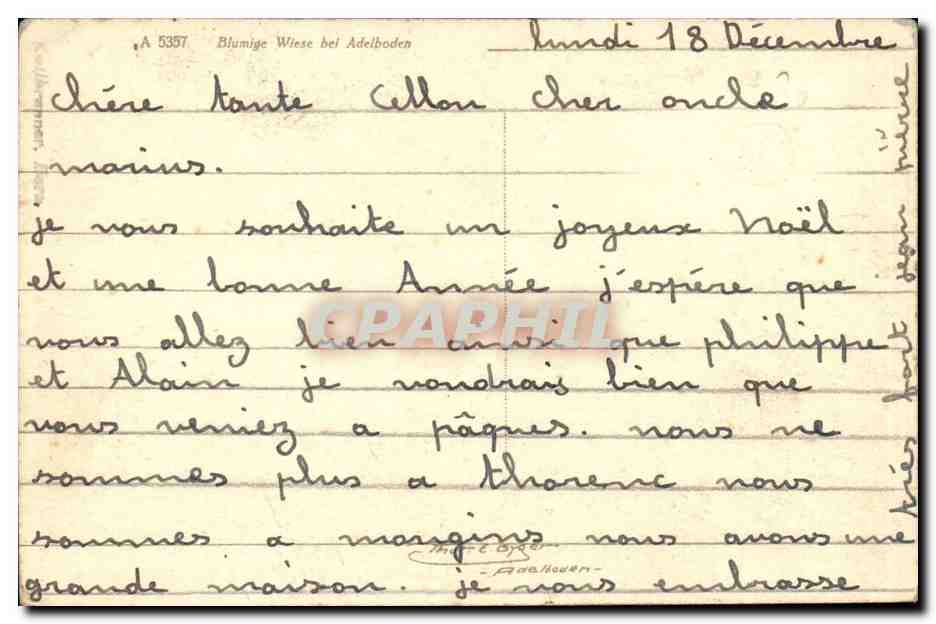 A 5357 Blumige Wiese bei Adelboden
lundi 18 Décembre
chére tante Cellon cher oncle
marius.
je vous souhaite un joyeux Noël
et une bonne Année j'espére que
vous allez bien ainsi que philippe
et Alain je voudrais bien que
vous veniez a pâques. nous ne
sommes plus a thorenc nous
sommes a mougins nous avons une
grande maison. je vous embrasse
très fort jean pierre
CPAPHIL
E. Gyger
-Adelboden-